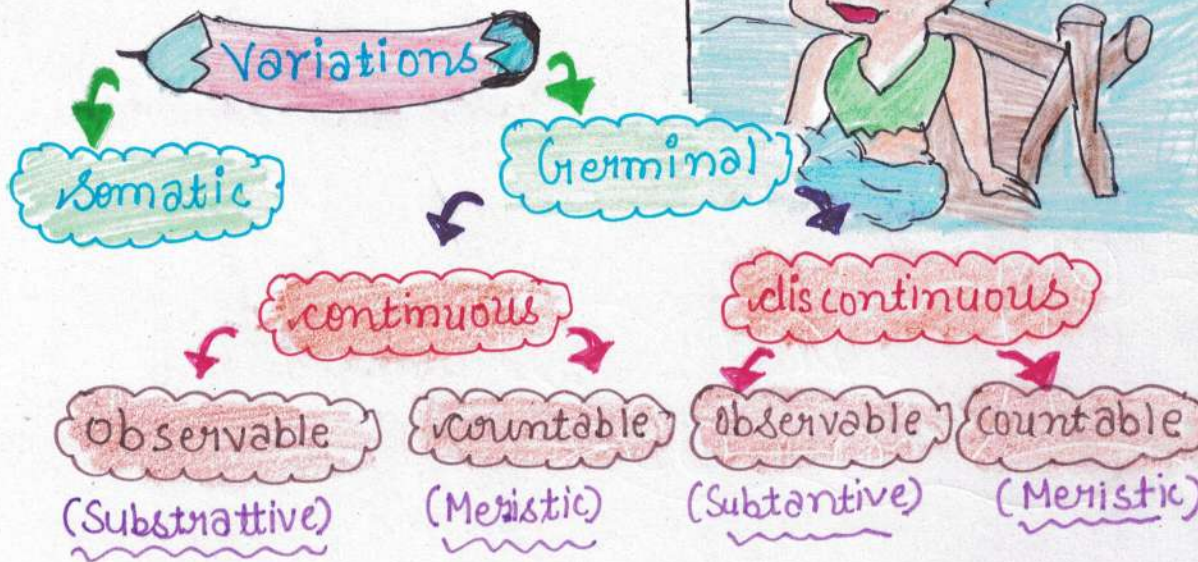 Variations
Somatic Germinal
continuous discontinuous
Observable countable Observable countable
(Substrattive) (Meristic) (Subtantive) (Meristic)